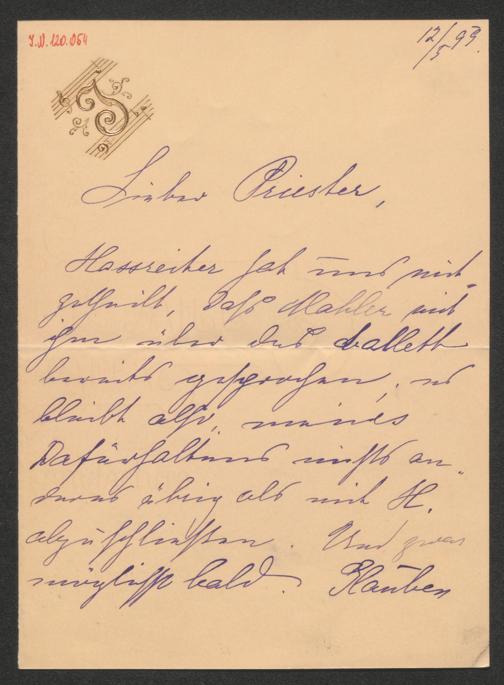 I.N. 120.054
12/5 93.
Lieber Priester,
Hassreiter hat uns mit-
getheilt, daß Mahler mit
ihm über das Ballett
bereits gesprochen, es
bleibt also, meines
Dafürhaltens nichts an-
deres übrig als mit H.
abzuschließen. Und zwar
möglichst bald. Glauben